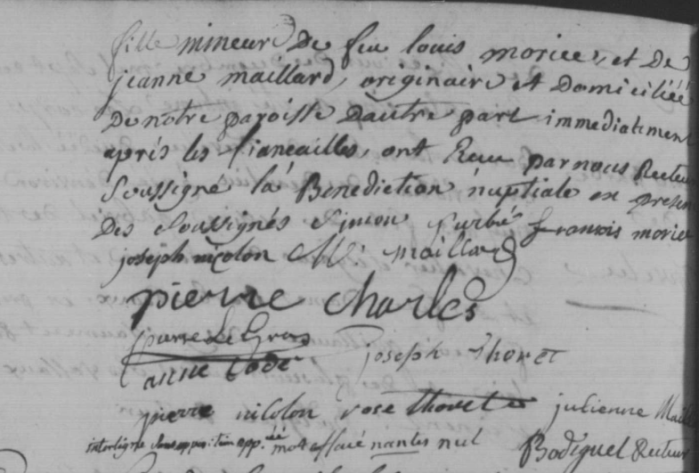 fille mineure De feu louis morice, et De
jeanne maillard, originaire et Domiciliée
De notre paroisse Dautre part immediatement
après les fiancailles, ont Reçu par nous Recteur
Soussigné la Benediction nuptiale en presen
Des Soussignés Simon Surbé françois morice
joseph nicolon Mi maillard
pierre charles
pierre Le Gros
anne Codé joseph thoret
pierre nicolon rose thoret julienne Mail
interligne opposition app. mot effacé nantes nul Bodiguel Recteur